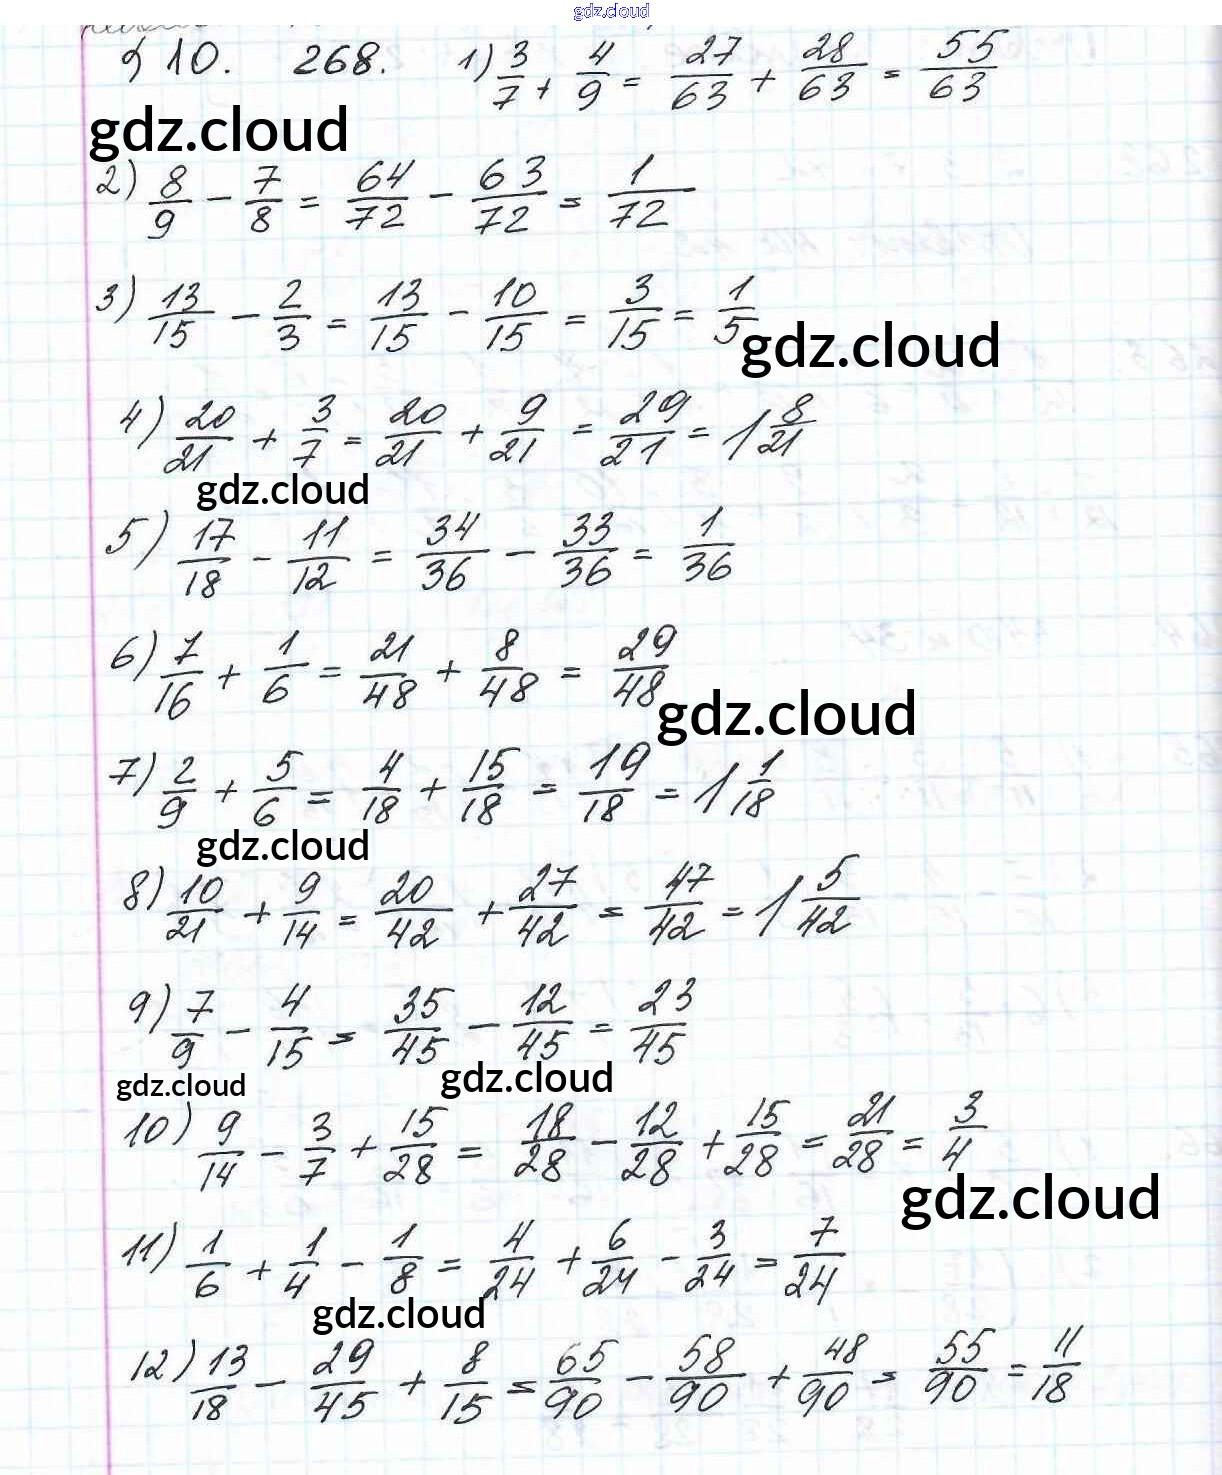 gdz.cloud
§ 10. 268. 1) 3/7 + 4/9 = 27/63 + 28/63 = 55/63
gdz.cloud
2) 8/9 - 7/8 = 64/72 - 63/72 = 1/72
3) 13/15 - 2/3 = 13/15 - 10/15 = 3/15 = 1/5
gdz.cloud
4) 20/21 + 3/7 = 20/21 + 9/21 = 29/21 = 1 8/21
gdz.cloud
5) 17/18 - 11/12 = 34/36 - 33/36 = 1/36
6) 7/16 + 1/6 = 21/48 + 8/48 = 29/48
gdz.cloud
7) 2/9 + 5/6 = 4/18 + 15/18 = 19/18 = 1 1/18
gdz.cloud
8) 10/21 + 9/14 = 20/42 + 27/42 = 47/42 = 1 5/42
9) 7/9 - 4/15 = 35/45 - 12/45 = 23/45
gdz.cloud gdz.cloud
10) 9/14 - 3/7 + 15/28 = 18/28 - 12/28 + 15/28 = 21/28 = 3/4
gdz.cloud
11) 1/6 + 1/4 - 1/8 = 4/24 + 6/24 - 3/24 = 7/24
gdz.cloud
12) 13/18 - 29/45 + 8/15 = 65/90 - 58/90 + 48/90 = 55/90 = 11/18